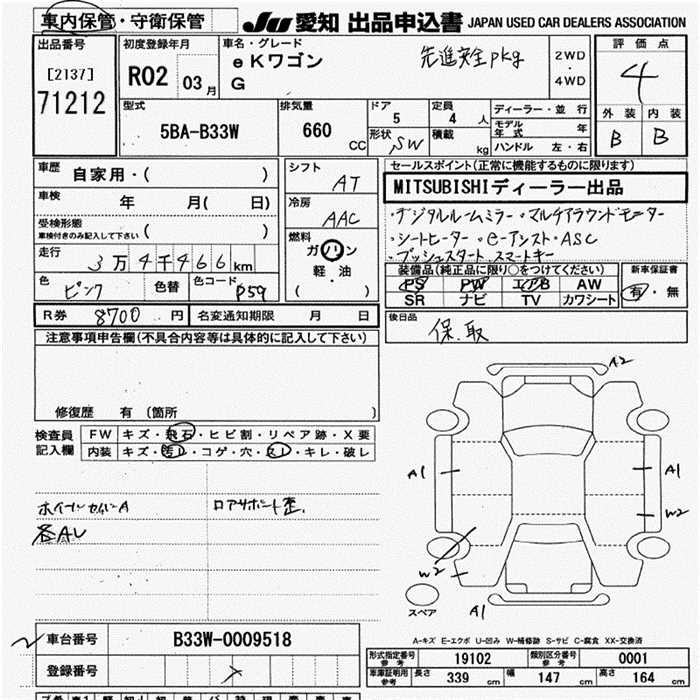 車内保管・守衛保管
JU 愛知 出品申込書 JAPAN USED CAR DEALERS ASSOCIATION
出品番号
[2137]
71212
初度登録年月
R02 03月
車名・グレード
eKワゴン
G
先進安全pkg
2WD
・
4WD
評価点
4
外装 内装
B B
型式
5BA-B33W
排気量
660 CC
ドア
5
定員
4 人
形状 SW
積載 kg
ディーラー・並行
モデル年式 年
ハンドル 左・右
車歴
自家用・( )
車検
年 月( 日)
受検形態
車検付きのみ記入して下さい ( )
走行
3万4千466km
色 ピンク 色替 色コード P59
シフト
AT
冷房
AAC
燃料
ガソリン
軽・油
( )
セールスポイント(正常に機能するものに限ります)
MITSUBISHIディーラー出品
・デジタルルームミラー・マルチアラウンドモニター
・シートヒーター・e-アシスト・ASC
・プッシュスタート・スマートキー
装備品(純正品に限り○をつけてください)
PS PW エアB AW
SR ナビ TV カワシート
新車保証書
有・無
R券 8700 円 名変通知期限 月 日
後日品
保.取
注意事項申告欄(不具合内容等は具体的に記入して下さい)
修復歴 有 (箇所 )
検査員記入欄
FW キズ・飛石・ヒビ割・リペア跡・X要
内装 キズ・汚レ・コゲ・穴・スレ・キレ・破レ
ホイールセンターA ロアサポート歪.
各AU
A2
A1
A1
W2
W2
A1
スペア
A-キズ E-エクボ U-凹み W-補修跡 S-サビ C-腐食 XX-交換済
車台番号 B33W-0009518
登録番号
形式指定番号 参考 19102 類別区分番号 参考 0001
車庫証明用 参考 長さ 339 cm 幅 147 cm 高さ 164 cm